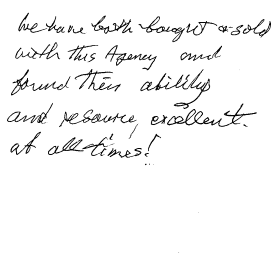 We have both bought & sold
with this Agency and
found their ability
and resource, excellent.
at all times!